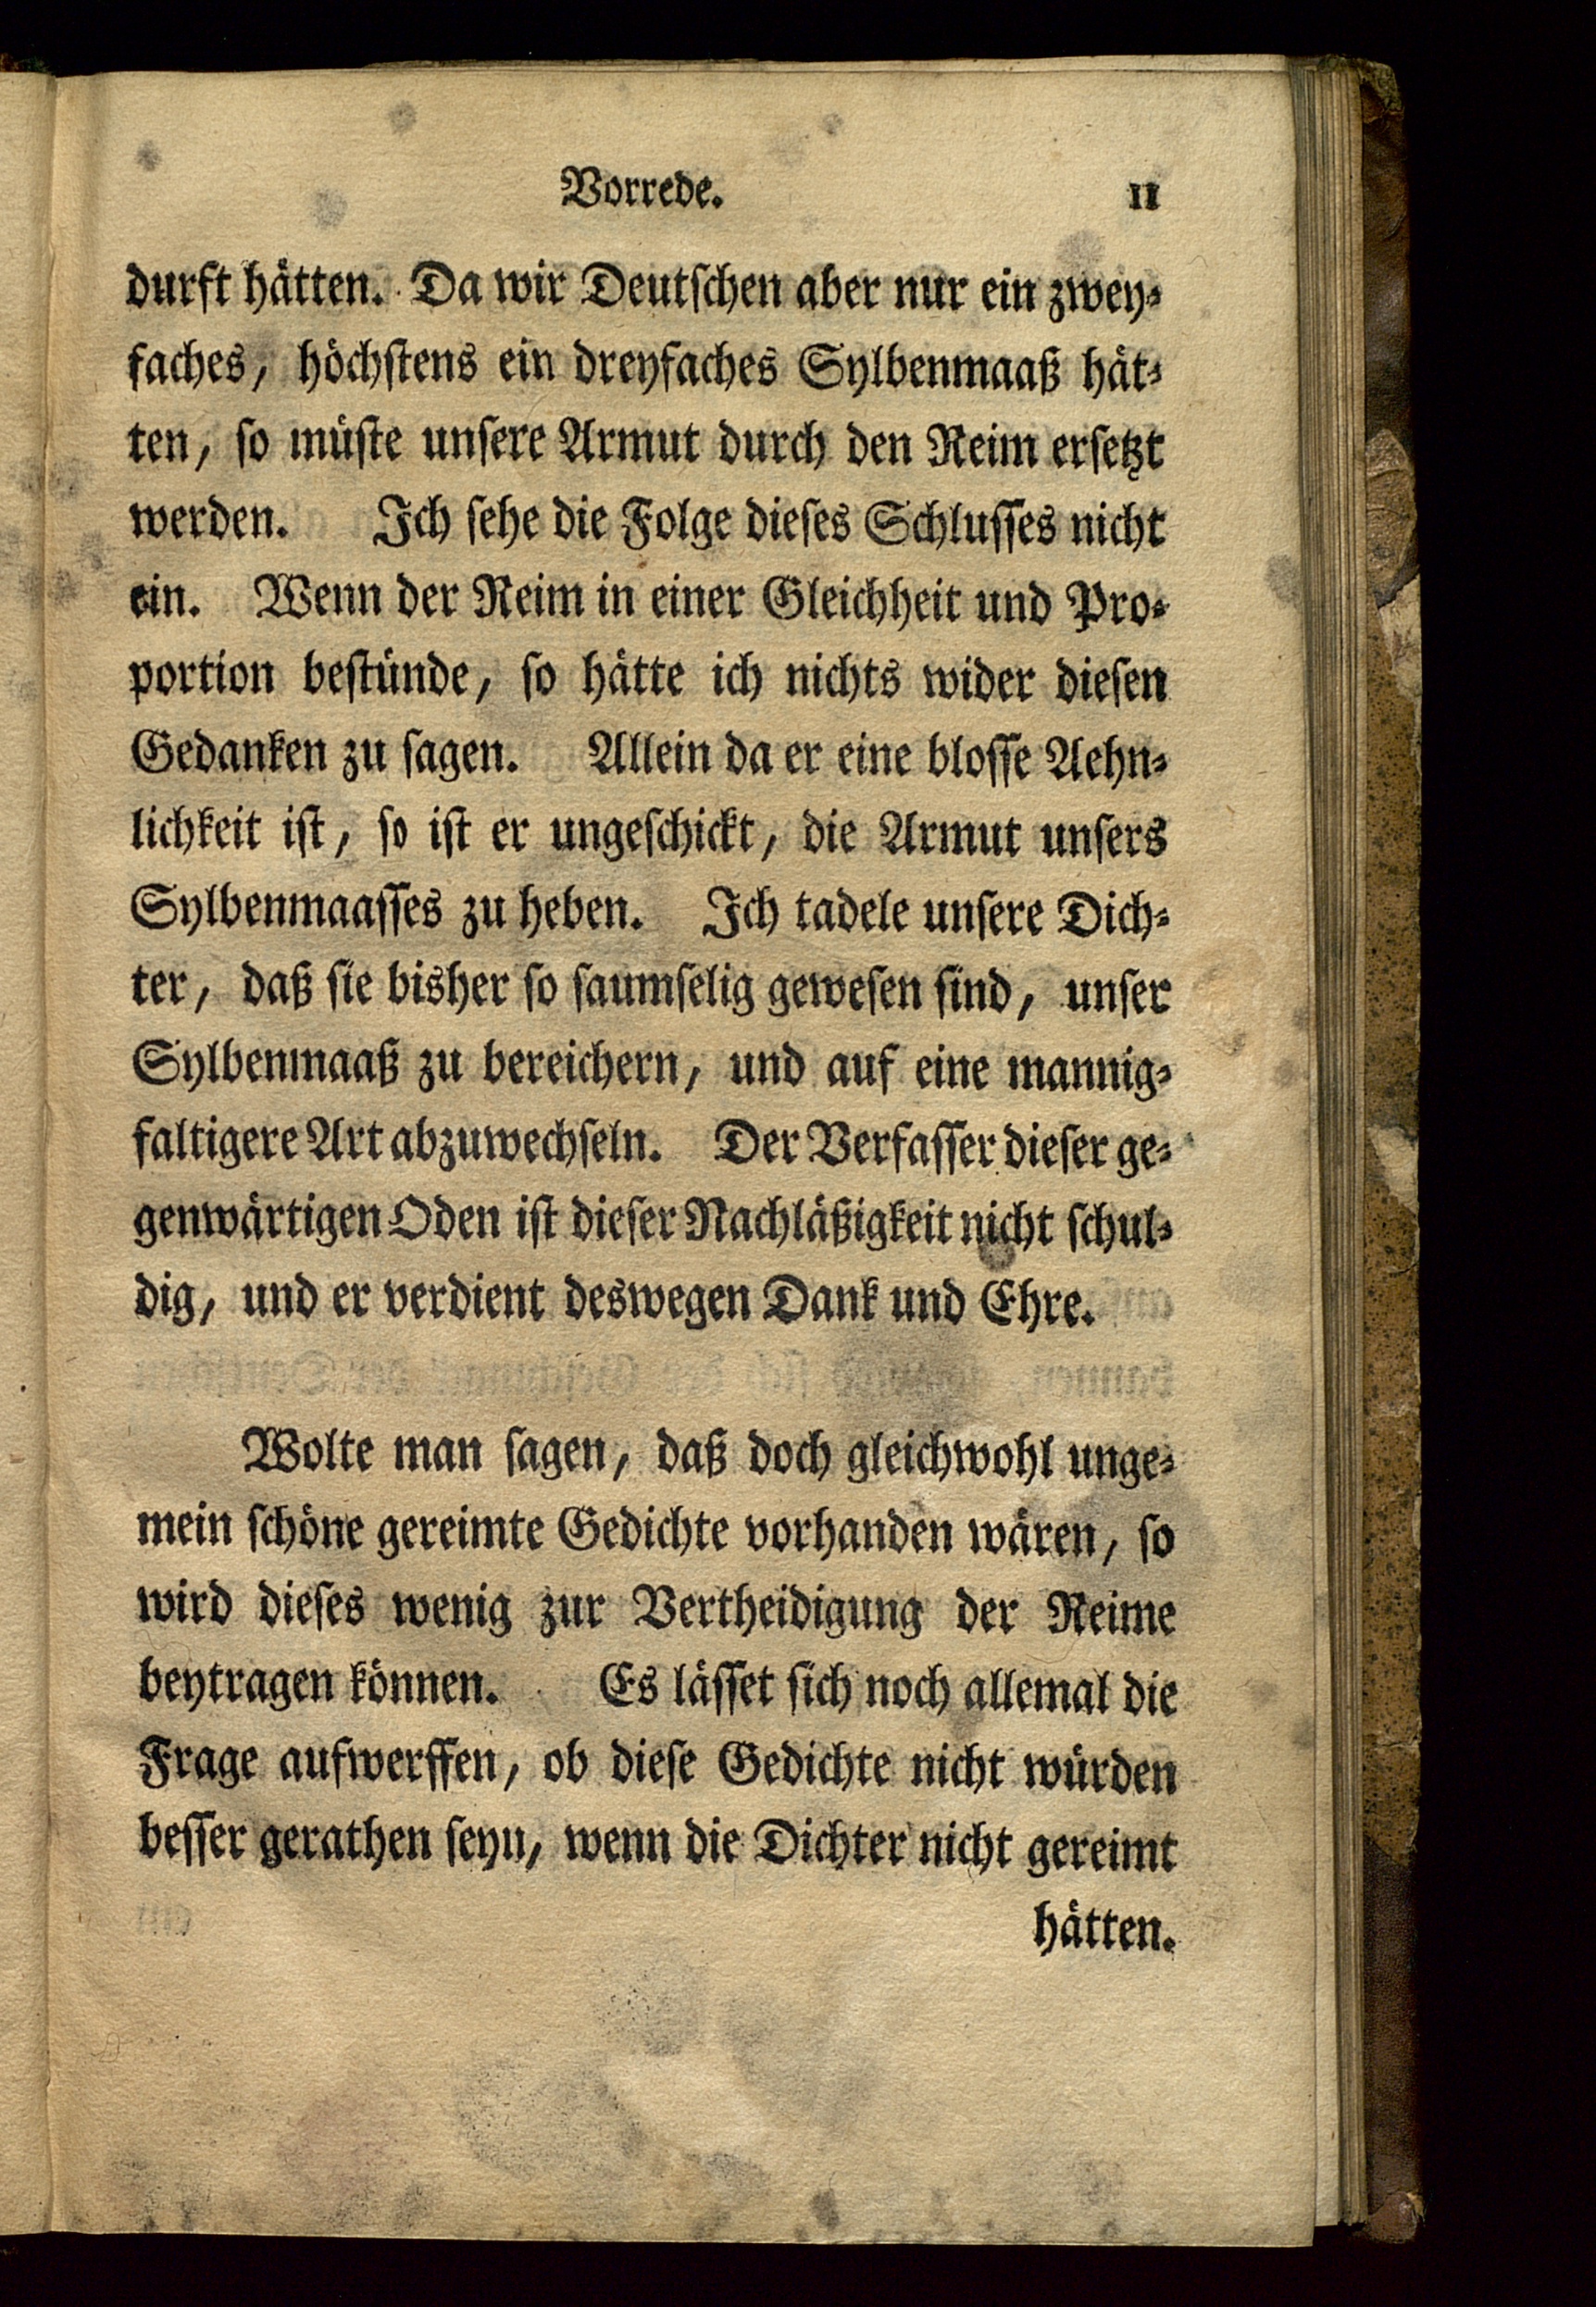 Vorrede. 11
durft hätten. Da wir Deutschen aber nur ein zwey-
faches, höchstens ein dreyfaches Sylbenmaaß hät-
ten, so müste unsere Armut durch den Reim ersetzt
werden. Ich sehe die Folge dieses Schlusses nicht
ein. Wenn der Reim in einer Gleichheit und Pro-
portion bestünde, so hätte ich nichts wider diesen
Gedanken zu sagen. Allein da er eine blosse Aehn-
lichkeit ist, so ist er ungeschickt, die Armut unsers
Sylbenmaasses zu heben. Ich tadele unsere Dich-
ter, daß sie bisher so saumselig gewesen sind, unser
Sylbenmaaß zu bereichern, und auf eine mannig-
faltigere Art abzuwechseln. Der Verfasser dieser ge-
genwärtigen Oden ist dieser Nachläßigkeit nicht schul-
dig, und er verdient deswegen Dank und Ehre.
Wolte man sagen, daß doch gleichwohl unge-
mein schöne gereimte Gedichte vorhanden wären, so
wird dieses wenig zur Vertheidigung der Reime
beytragen können. Es lässet sich noch allemal die
Frage aufwerffen, ob diese Gedichte nicht würden
besser gerathen seyn, wenn die Dichter nicht gereimt
hätten.